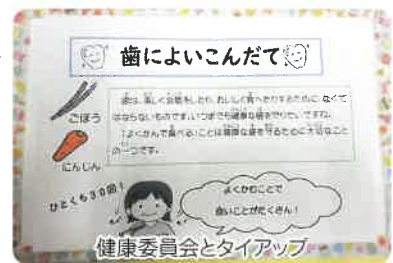 歯によいこんだて
ごぼう
にんじん
歯は、楽しく会話をしたり、おいしく食べたりするために なくて
はならないものです。いつまでも健康な歯を守りたいですね。
「よくかんで食べる」ことは健康な歯を守るために大切なこと
の一つです。
ひとくち30回！
よくかむことで
良いことがたくさん！
健康委員会とタイアップ